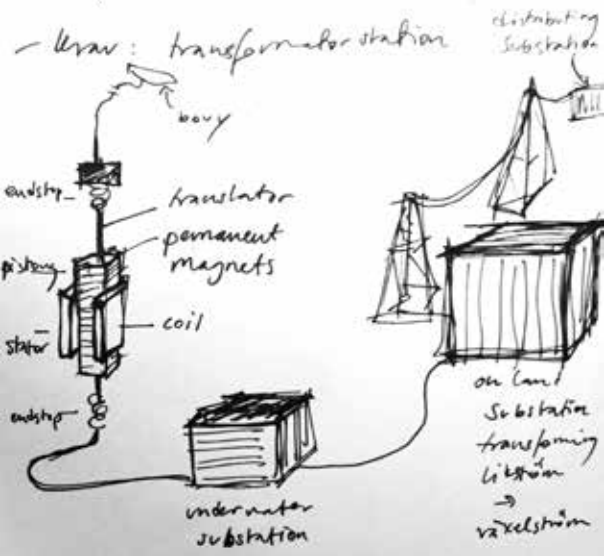 - krav: transformatorstation
distributing
substation
bouy
endstop
translator
permanent
magnets
pistong
coil
stator
endstop
underwater
substation
on land
substation
transforming
likström
→
växelström